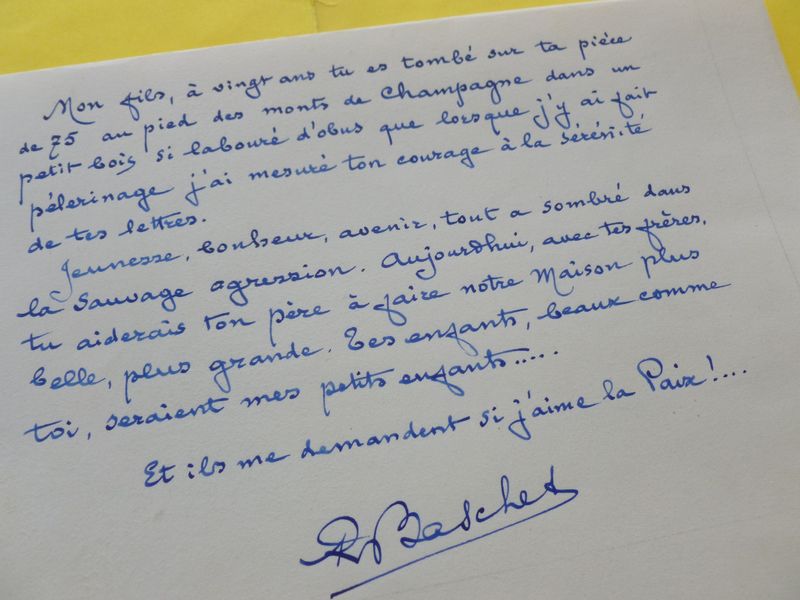 Mon fils, à vingt ans tu es tombé sur ta pièce
de 75 au pied des monts de Champagne dans un
petit bois si labouré d'obus que lorsque j'y ai fait
pélerinage j'ai mesuré ton courage à la sérénité
de tes lettres.
Jeunesse, bonheur, avenir, tout a sombré dans
la sauvage agression. Aujourdhui, avec tes frères,
tu aiderais ton père à faire notre Maison plus
belle, plus grande. Tes enfants, beaux comme
toi, seraient mes petits enfants.....
Et ils me demandent si j'aime la Paix!...
R Baschet